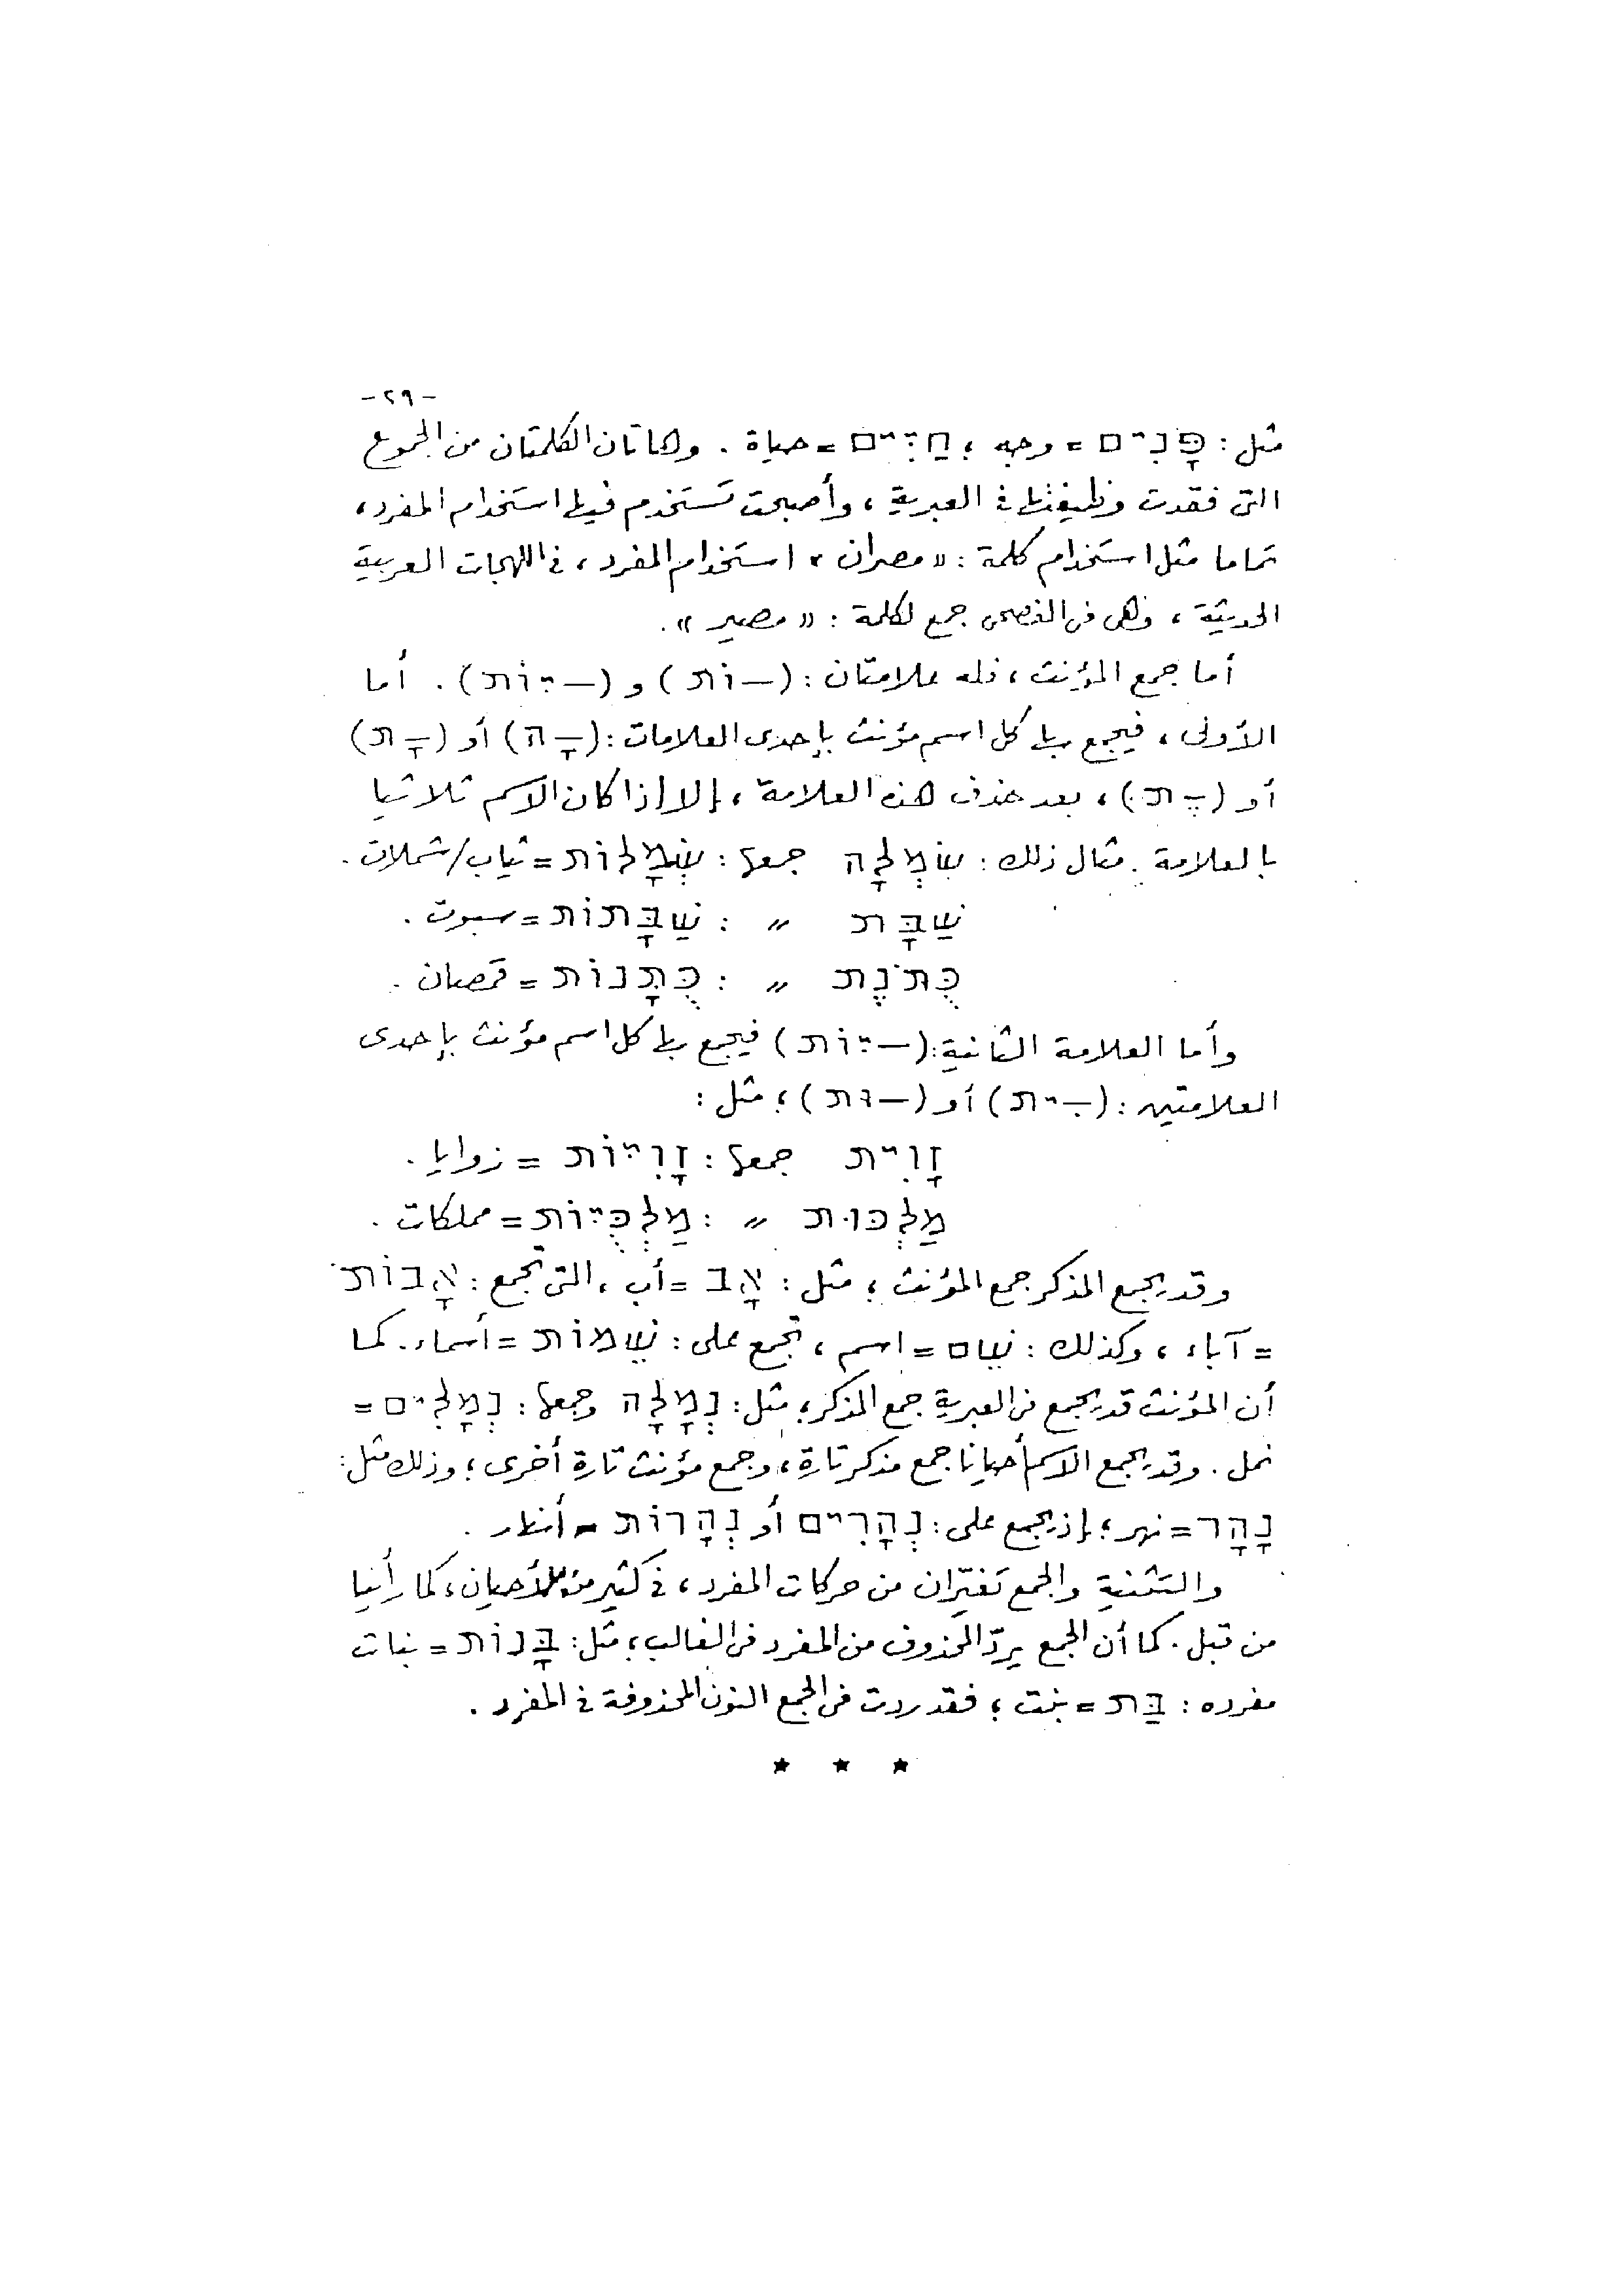 -٢٩-
مثل : פָּנִים = وجه ؛ חַיִּים = حياة . وهاتان الكلمتان من الجموع
التى فقدت وظيفتها فى العبرية ، وأصبحت تستخدم فيها استخدام المفرد ،
تماما مثل استخدام كلمة : « مصران » استخدام المفرد ، فى اللهجات العربية
الحديثة ، وهى فى الفصحى جمع لكلمة : « مصير » .
أما جمع المؤنث ، فله علامتان : (— וֹת) و (— יּוֹת) . أما
الأولى ، فيجمع بها كل اسم مؤنث بإحدى العلامات : (—ָ ה) أو (—ָ ת)
أو (—ֶ ת) ، بعد حذف هذه العلامة ، إلا إذا كان الاسم ثلاثيا
بالعلامة . مثال ذلك : שִׂמְלָה جمعها : שְׂמָלוֹת = ثياب/شملات .
שַׁבָּת 〃 : שַׁבָּתוֹת = سبوت .
כֻּתֹּנֶת 〃 : כֻּתָּנוֹת = قمصان .
وأما العلامة الثانية : (— יּוֹת) فيجمع بها كل اسم مؤنث بإحدى
العلامتين : (—ִ ית) أو (— וּת) ؛ مثل :
זָוִית جمعها : זָוִיּוֹת = زوايا .
מַלְכּוּת 〃 : מַלְכֻּיּוֹת = مملكات .
وقد يجمع المذكر جمع المؤنث ؛ مثل : אָב = أب ، التى تجمع : אָבוֹת
= آباء ، وكذلك : שֵׁם = اسم ، تجمع على : שֵׁמוֹת = أسماء . كما
أن المؤنث قد يجمع فى العبرية جمع المذكر ؛ مثل : נְמָלָה وجمعها : נְמָלִים =
نمل . وقد يجمع الاسم أحيانا جمع مذكر تارة ، وجمع مؤنث تارة أخرى ؛ وذلك مثل :
נָהָר = نهر ؛ إذ يجمع على : נְהָרִים أو נְהָרוֹת = أنهار .
والتثنية والجمع تغيّران من حركات المفرد ، فى كثير من الأحيان ، كما رأينا
من قبل . كما أن الجمع يردّ المحذوف من المفرد فى الغالب ؛ مثل : בָּנוֹת = بنات
مفرده : בַּת = بنت ؛ فقد ردت فى الجمع النون المحذوفة فى المفرد .
★ ★ ★